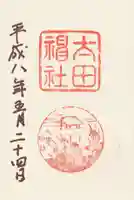 太田
神社
平成八年五月二十四日